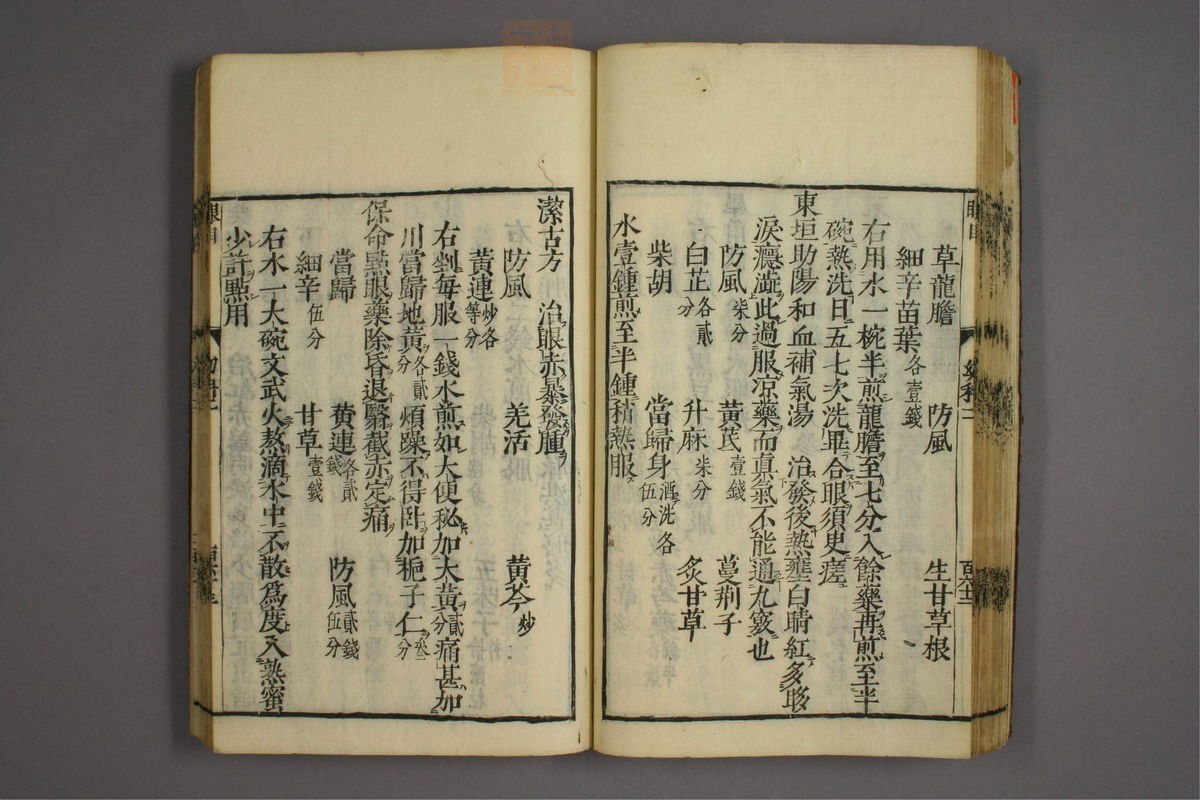 草龍膽 防風 生甘草根
細辛苗葉各壹錢
右用水一椀半煎龍膽至七分入餘藥再煎至半
碗熱洗日五七次洗畢合眼須臾瘥
東垣助陽和血補氣湯 治發後熱壅白睛紅多眵
淚癮澁此過服凉藥而眞氣不能通九竅也
防風柒分 黃芪壹錢 蔓荆子
白芷各貳分 升麻柒分 炙甘草
柴胡 當歸身酒洗各伍分
水壹鍾煎至半鍾稍熱服
潔古方 治眼赤暴發腫
防風 羌活 黃芩炒
黃連炒各等分
右剉每服一錢水煎如大便秘加大黃貳分痛甚加
川當歸地黃各貳分煩躁不得臥加梔子仁分
保命㸃眼藥除昏退翳截赤定痛
當歸 黃連各貳錢 防風貳錢伍分
細辛伍分 甘草壹錢
右水一大碗文武火熬滴水中不散爲度入熟蜜
少許㸃用